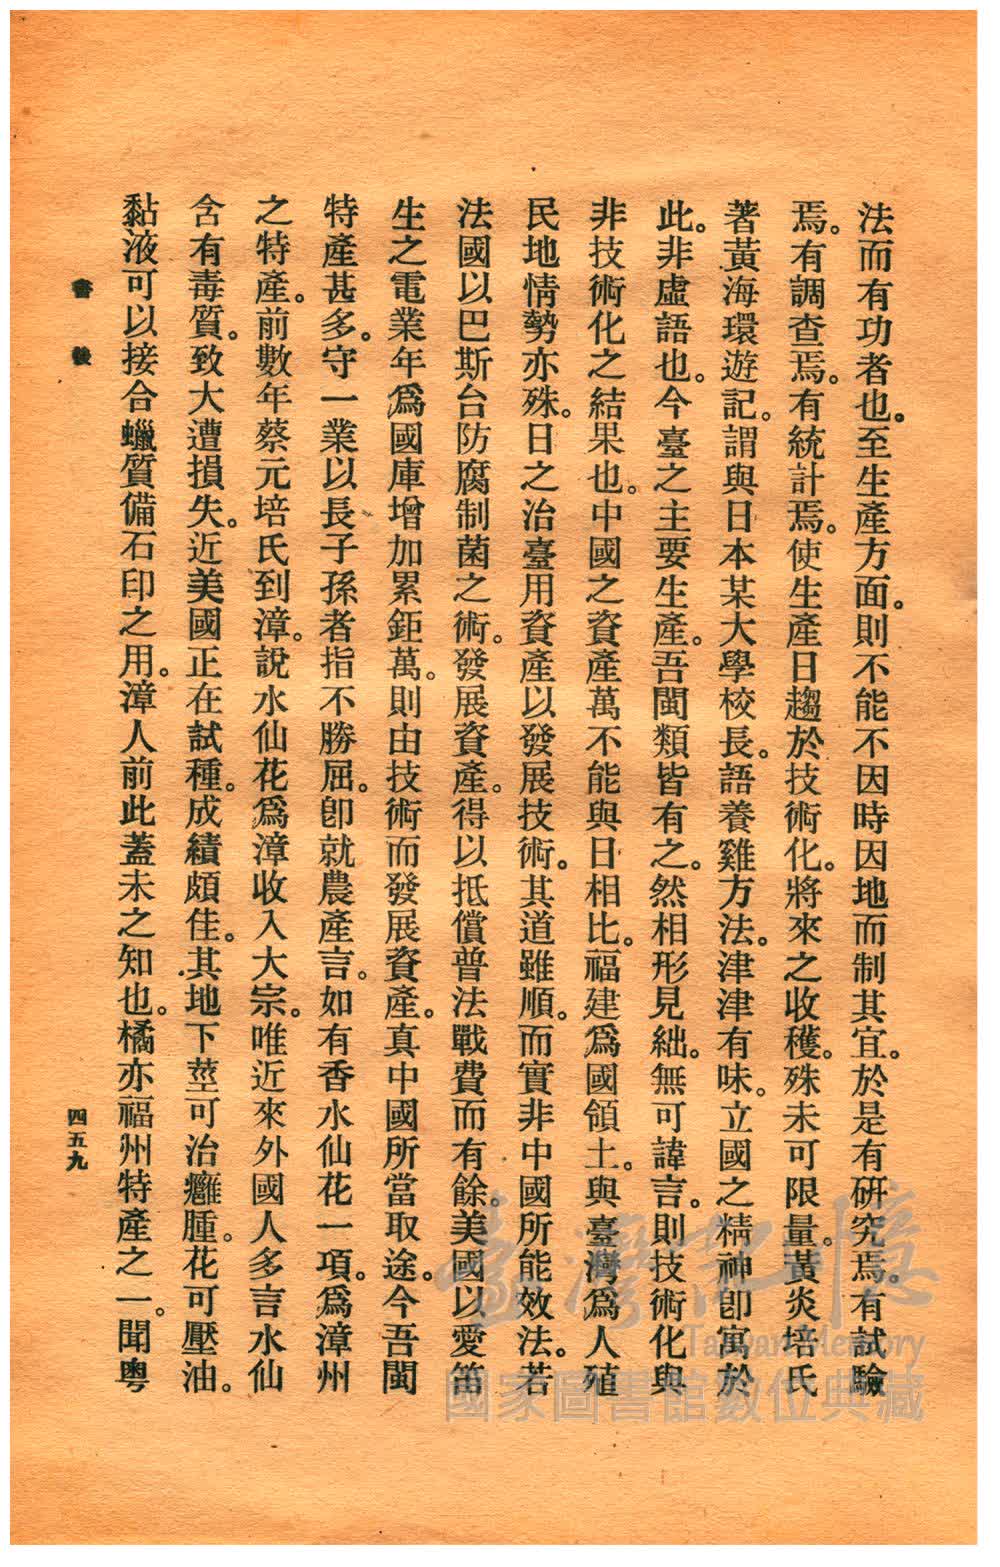 法而有功者也。至生產方面。則不能不因時因地而制其宜。於是有研究焉。有試驗
焉。有調查焉。有統計焉。使生產日趨於技術化。將來之收穫。殊未可限量。黃炎培氏
著黃海環遊記。謂與日本某大學校長。語養雞方法。津津有味。立國之精神卽寓於
此。非虛語也。今臺之主要生產。吾閩類皆有之。然相形見絀。無可諱言。則技術化與
非技術化之結果也。中國之資產萬不能與日相比。福建爲國領土。與臺灣爲人殖
民地情勢亦殊。日之治臺用資產以發展技術。其道雖順。而實非中國所能效法。若
法國以巴斯台防腐制菌之術。發展資產。得以抵償普法戰費而有餘。美國以愛笛
生之電業年爲國庫增加累鉅萬。則由技術而發展資產。真中國所當取途。今吾閩
特產甚多。守一業以長子孫者指不勝屈。卽就農產言。如有香水仙花一項。爲漳州
之特產。前數年蔡元培氏到漳。說水仙花爲漳收入大宗。唯近來外國人多言水仙
含有毒質。致大遭損失。近美國正在試種。成績頗佳。其地下莖可治癰腫。花可壓油。
黏液可以接合蠟質備石印之用。漳人前此蓋未之知也。橘亦福州特產之一。聞粵
書後
四五九
臺灣記憶
Taiwan Memory
國家圖書館數位典藏